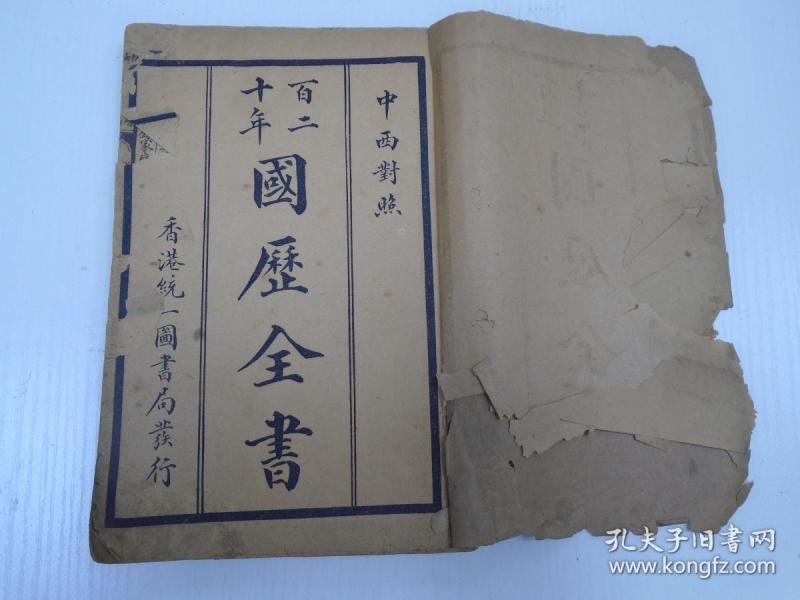 中西對照
百二
十年
國歷全書
香港統一圖書局發行
孔夫子旧书网
www.kongfz.com